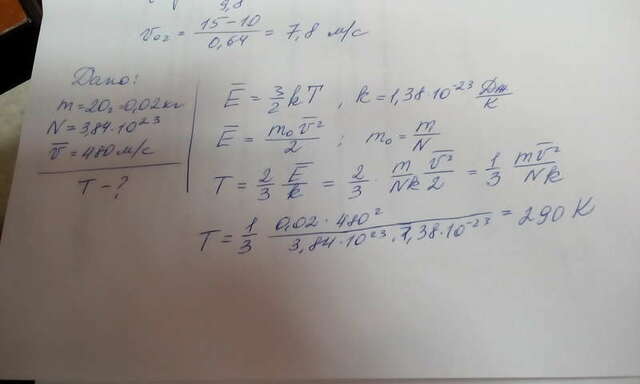 9,8
v₀₂ = (15-10)/0,64 = 7,8 м/с
Дано:
m=20г=0,02кг
N=3,84·10²³
v̅=480м/с
T-?
E̅ = 3/2 kT , k=1,38·10⁻²³ Дж/К
E̅ = m₀v̅²/2 ; m₀ = m/N
T = 2/3 E̅/k = 2/3 · m/(Nk) v̅²/2 = 1/3 mv̅²/(Nk)
T = 1/3 (0,02·480²)/(3,84·10²³·1,38·10⁻²³) = 290 К